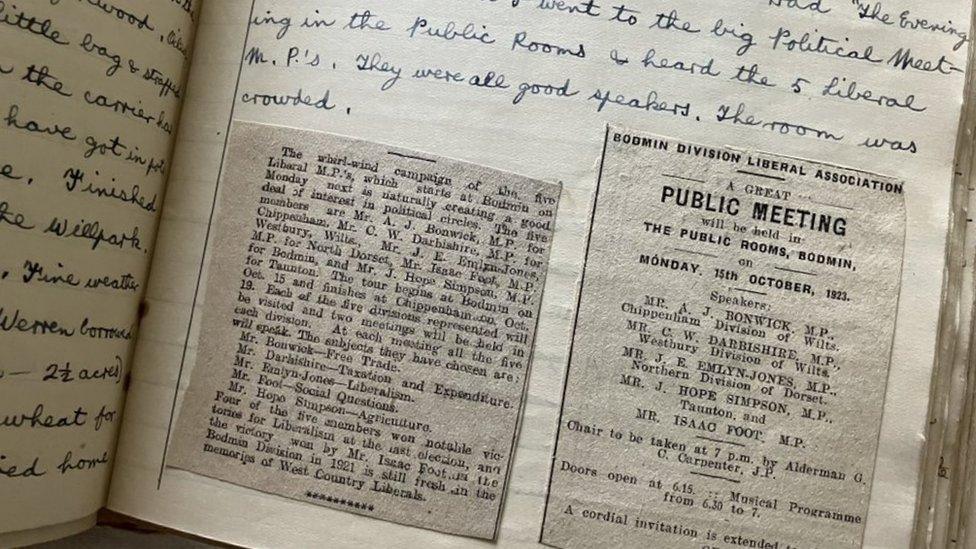 the
lwood.
little bag & strapped
the carrier ha
have got in
Finished
the Willpark.
Fine weather
Werren borrowed
— 2½ acres)
wheat for
ied home
had "The Evening
went to the big Political Meet-
ing in the Public Rooms & heard the 5 Liberal
M.P.'s. They were all good speakers. The room was
crowded.
The whirl-wind campaign of the five
Liberal M.P.'s, which starts at Bodmin on
Monday next is naturally creating a good
deal of interest in political circles. The five
members are Mr. A. J. Bonwick, M.P. for
Chippenham, Mr. C. W. Darbishire, M.P. for
Westbury, Wilts., Mr. J. E. Emlyn-Jones,
M.P. for North Dorset, Mr. Isaac Foot, M.P.
for Bodmin, and Mr. J. Hope Simpson, M.P.
for Taunton. The tour begins at Bodmin on
Oct. 15 and finishes at Chippenham on, Oct.
19. Each of the five divisions represented will
be visited and two meetings will be held in
each division. At each meeting all the five
will speak. The subjects they have chosen are:
Mr. Bonwick—Free Trade.
Mr. Darbishire—Taxation and Expenditure.
Mr. Emlyn-Jones—Liberalism.
Mr. Foot—Social Questions.
Mr. Hope Simpson—Agriculture.
Four of the five members won notable vic-
tories for Liberalism at the last election, and
the victory won by Mr. Isaac Foot in the
Bodmin Division in 1921 is still fresh in the
memories of West Country Liberals.
**********
BODMIN DIVISION LIBERAL ASSOCIATION
A GREAT
PUBLIC MEETING
will be held in
THE PUBLIC ROOMS, BODMIN,
on
MONDAY, 15th OCTOBER, 1923.
Speakers:
MR. A. J. BONWICK, M.P.,
Chippenham Division of Wilts.
MR. C. W. DARBISHIRE, M.P.,
Westbury Division of Wilts.
MR. J. E. EMLYN-JONES, M.P.,
Northern Division of Dorset.
MR. J. HOPE SIMPSON, M.P.,
Taunton, and
MR. ISAAC FOOT, M.P.
Chair to be taken at 7 p.m. by Alderman G.
C. Carpenter, J.P.
Doors open at 6.15. :: Musical Programme
from 6.30 to 7.
A cordial invitation is extended